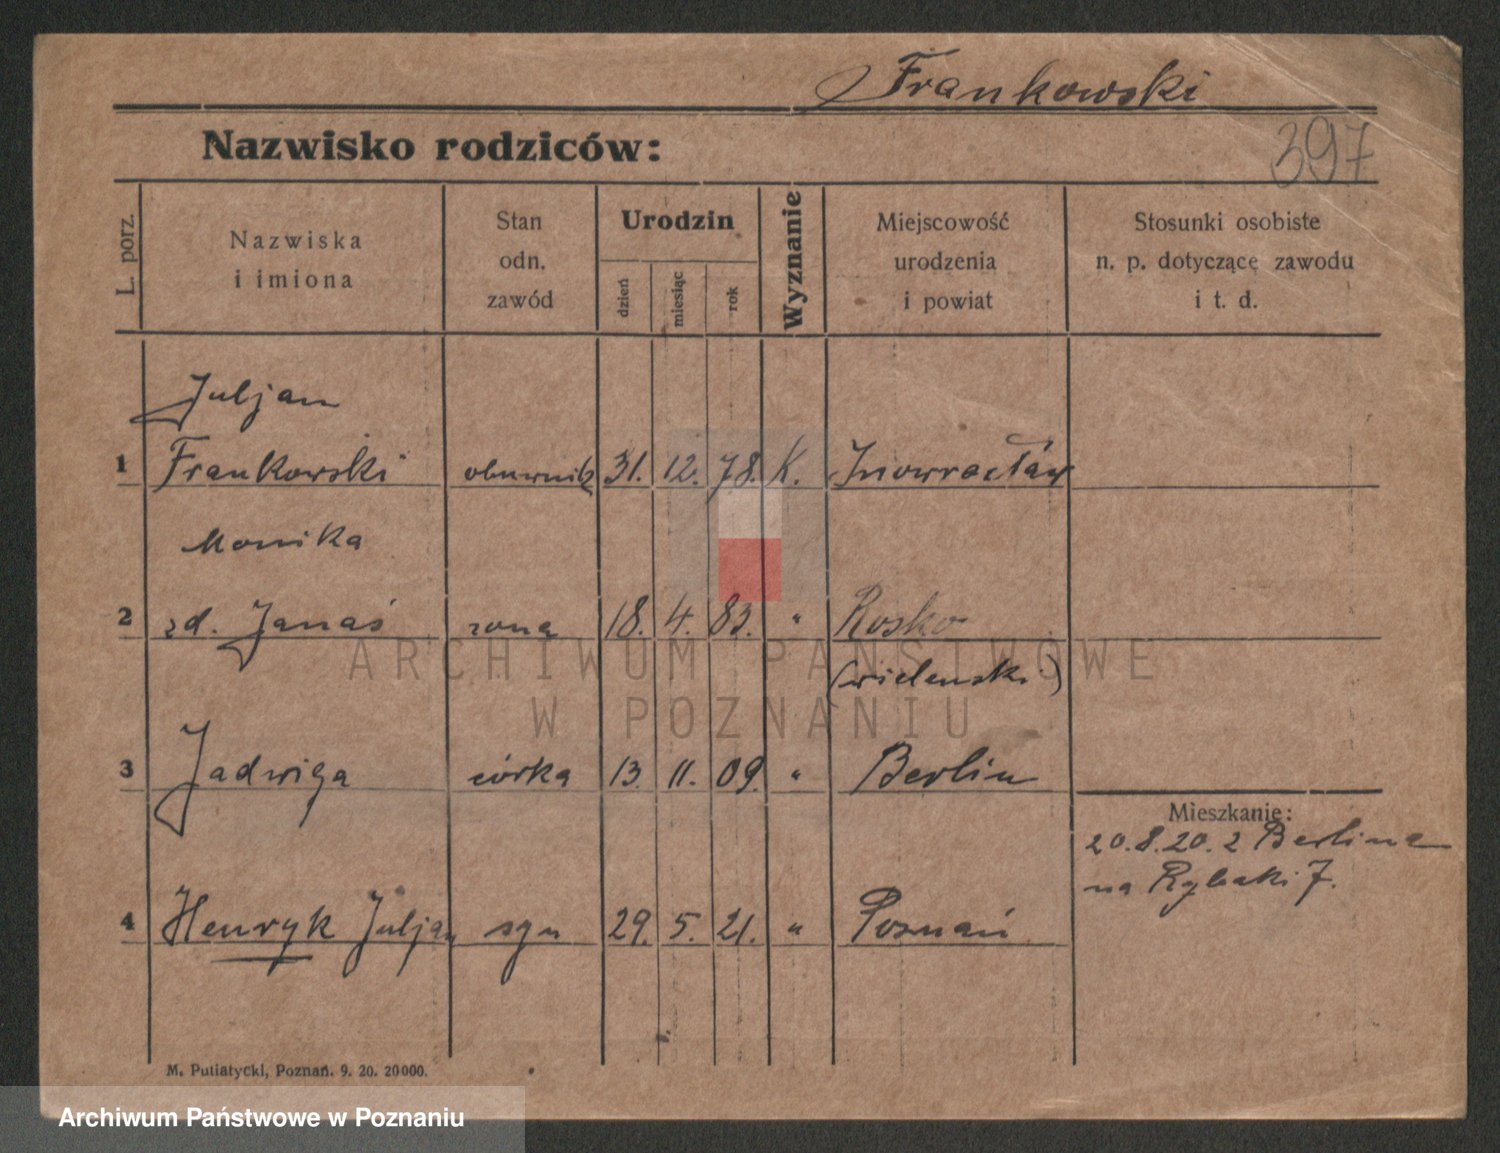 Frankowski
Nazwisko rodziców:
397
L. porz.
Nazwiska
i imiona
Stan
odn.
zawód
Urodzin
dzień
miesiąc
rok
Wyznanie
Miejscowość
urodzenia
i powiat
Stosunki osobiste
n. p. dotyczące zawodu
i t. d.
Juljan
1 Frankowski obuwnik 31. 12. 78. K. Inowrocław
Monika
2 zd. Janaś żona 18. 4. 83. " Rosko
(wieleński)
3 Jadwiga córka 13. 11. 09. " Berlin
Mieszkanie:
20.8.20. z Berlina
na Rybaki 7.
4 Henryk Juljan syn 29. 5. 21. " Poznań
M. Putiatycki, Poznań. 9. 20. 20000.
ARCHIWUM PAŃSTWOWE
W POZNANIU
Archiwum Państwowe w Poznaniu